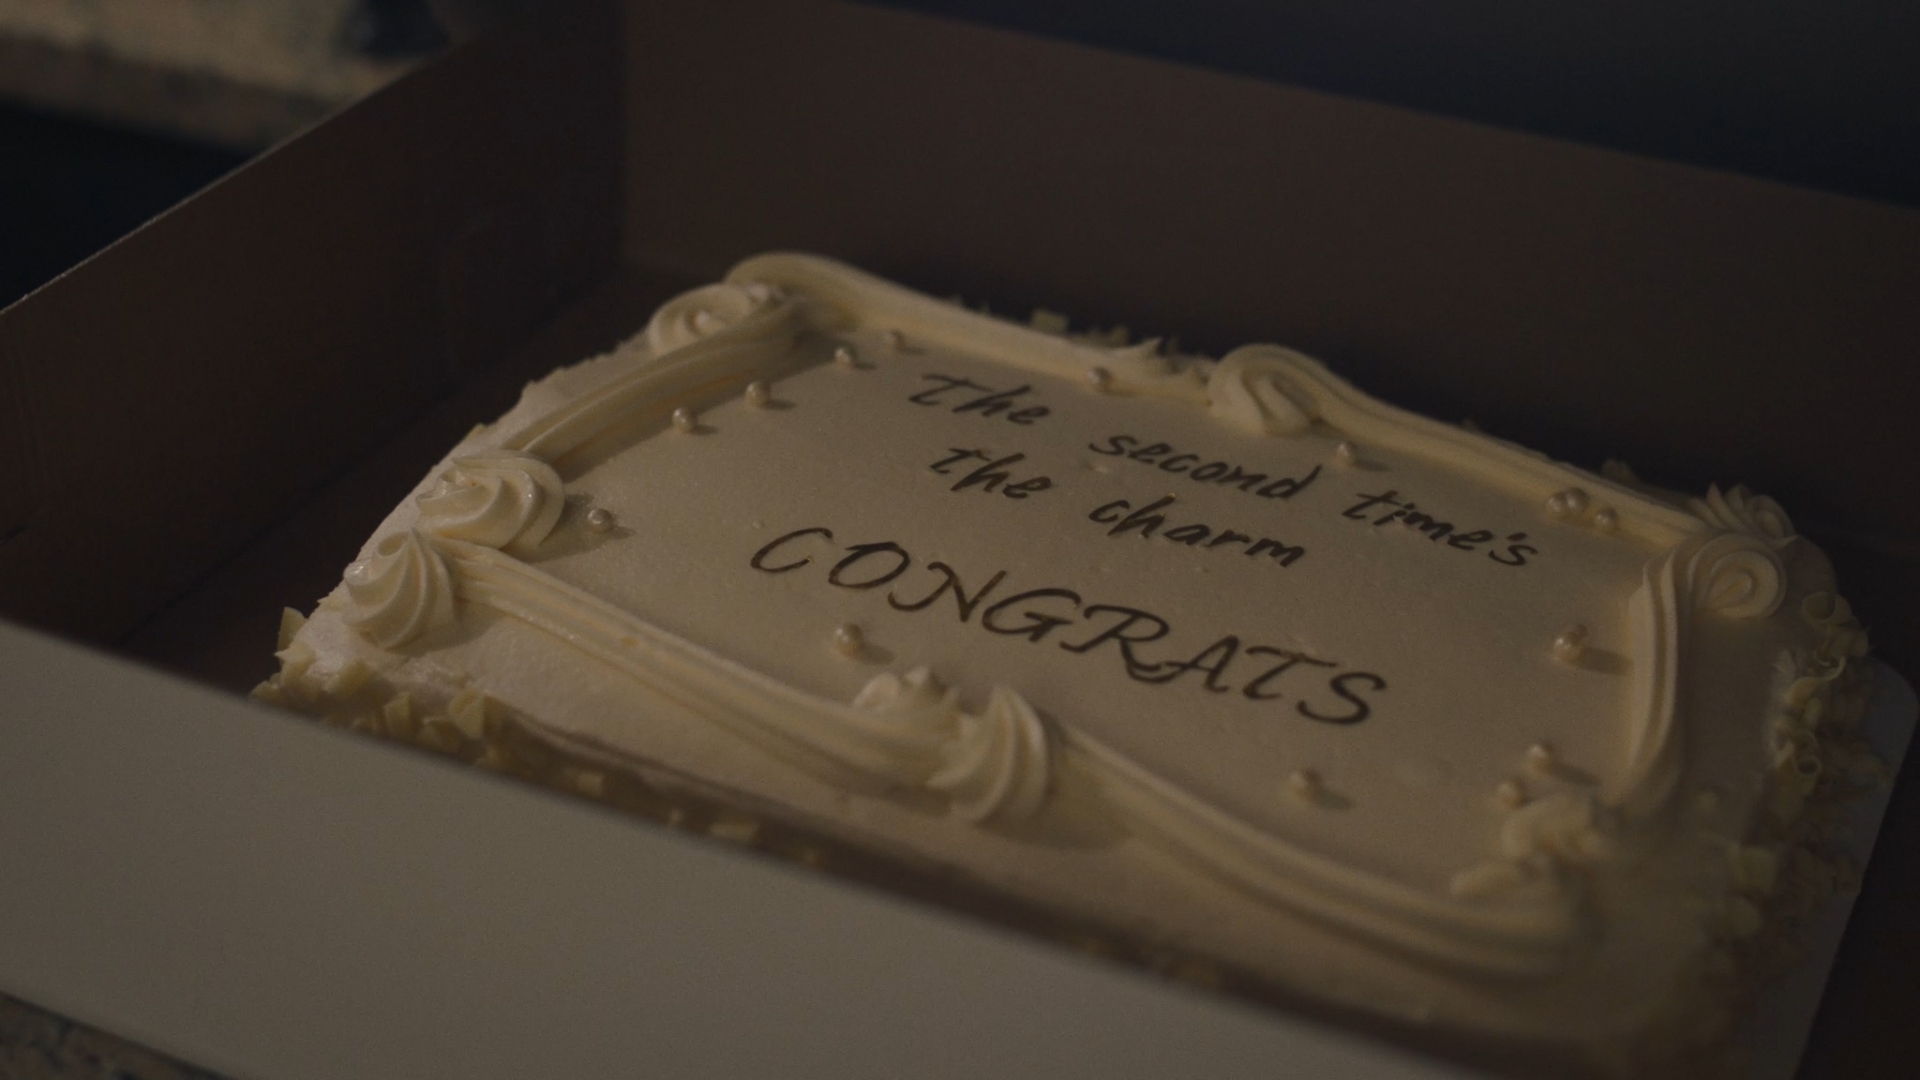 The second time's
the charm
CONGRATS